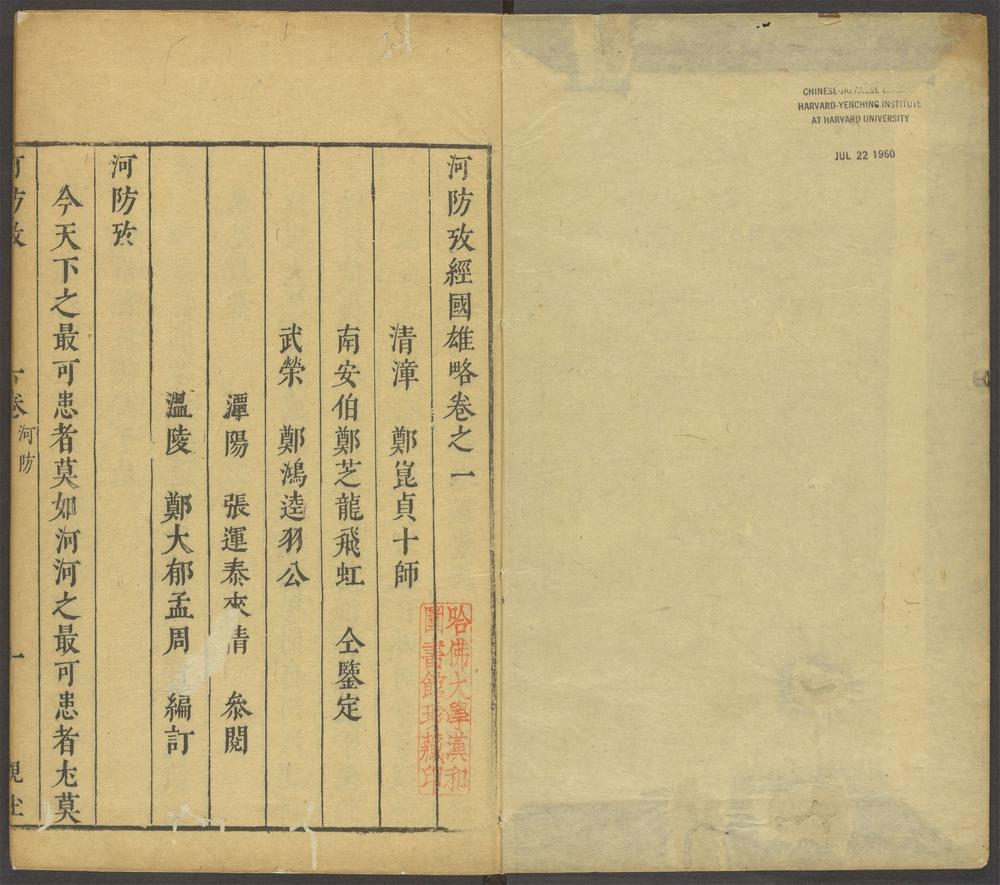 CHINESE-JAPANESE
HARVARD-YENCHING INSTITUTE
AT HARVARD UNIVERSITY
JUL 22 1960
河防攷經國雄略卷之一
清漳 鄭崑貞十師
南安伯鄭芝龍飛虹 仝鑒定
武榮 鄭鴻逵羽公
潭陽 張運泰夾清 叅閱
溫陵 鄭大郁孟周 編訂
河防攷
今天下之最可患者莫如河河之最可患者尤莫
河防攷 一卷 河防 一 觀
哈佛大學漢和
圖書館珍藏印